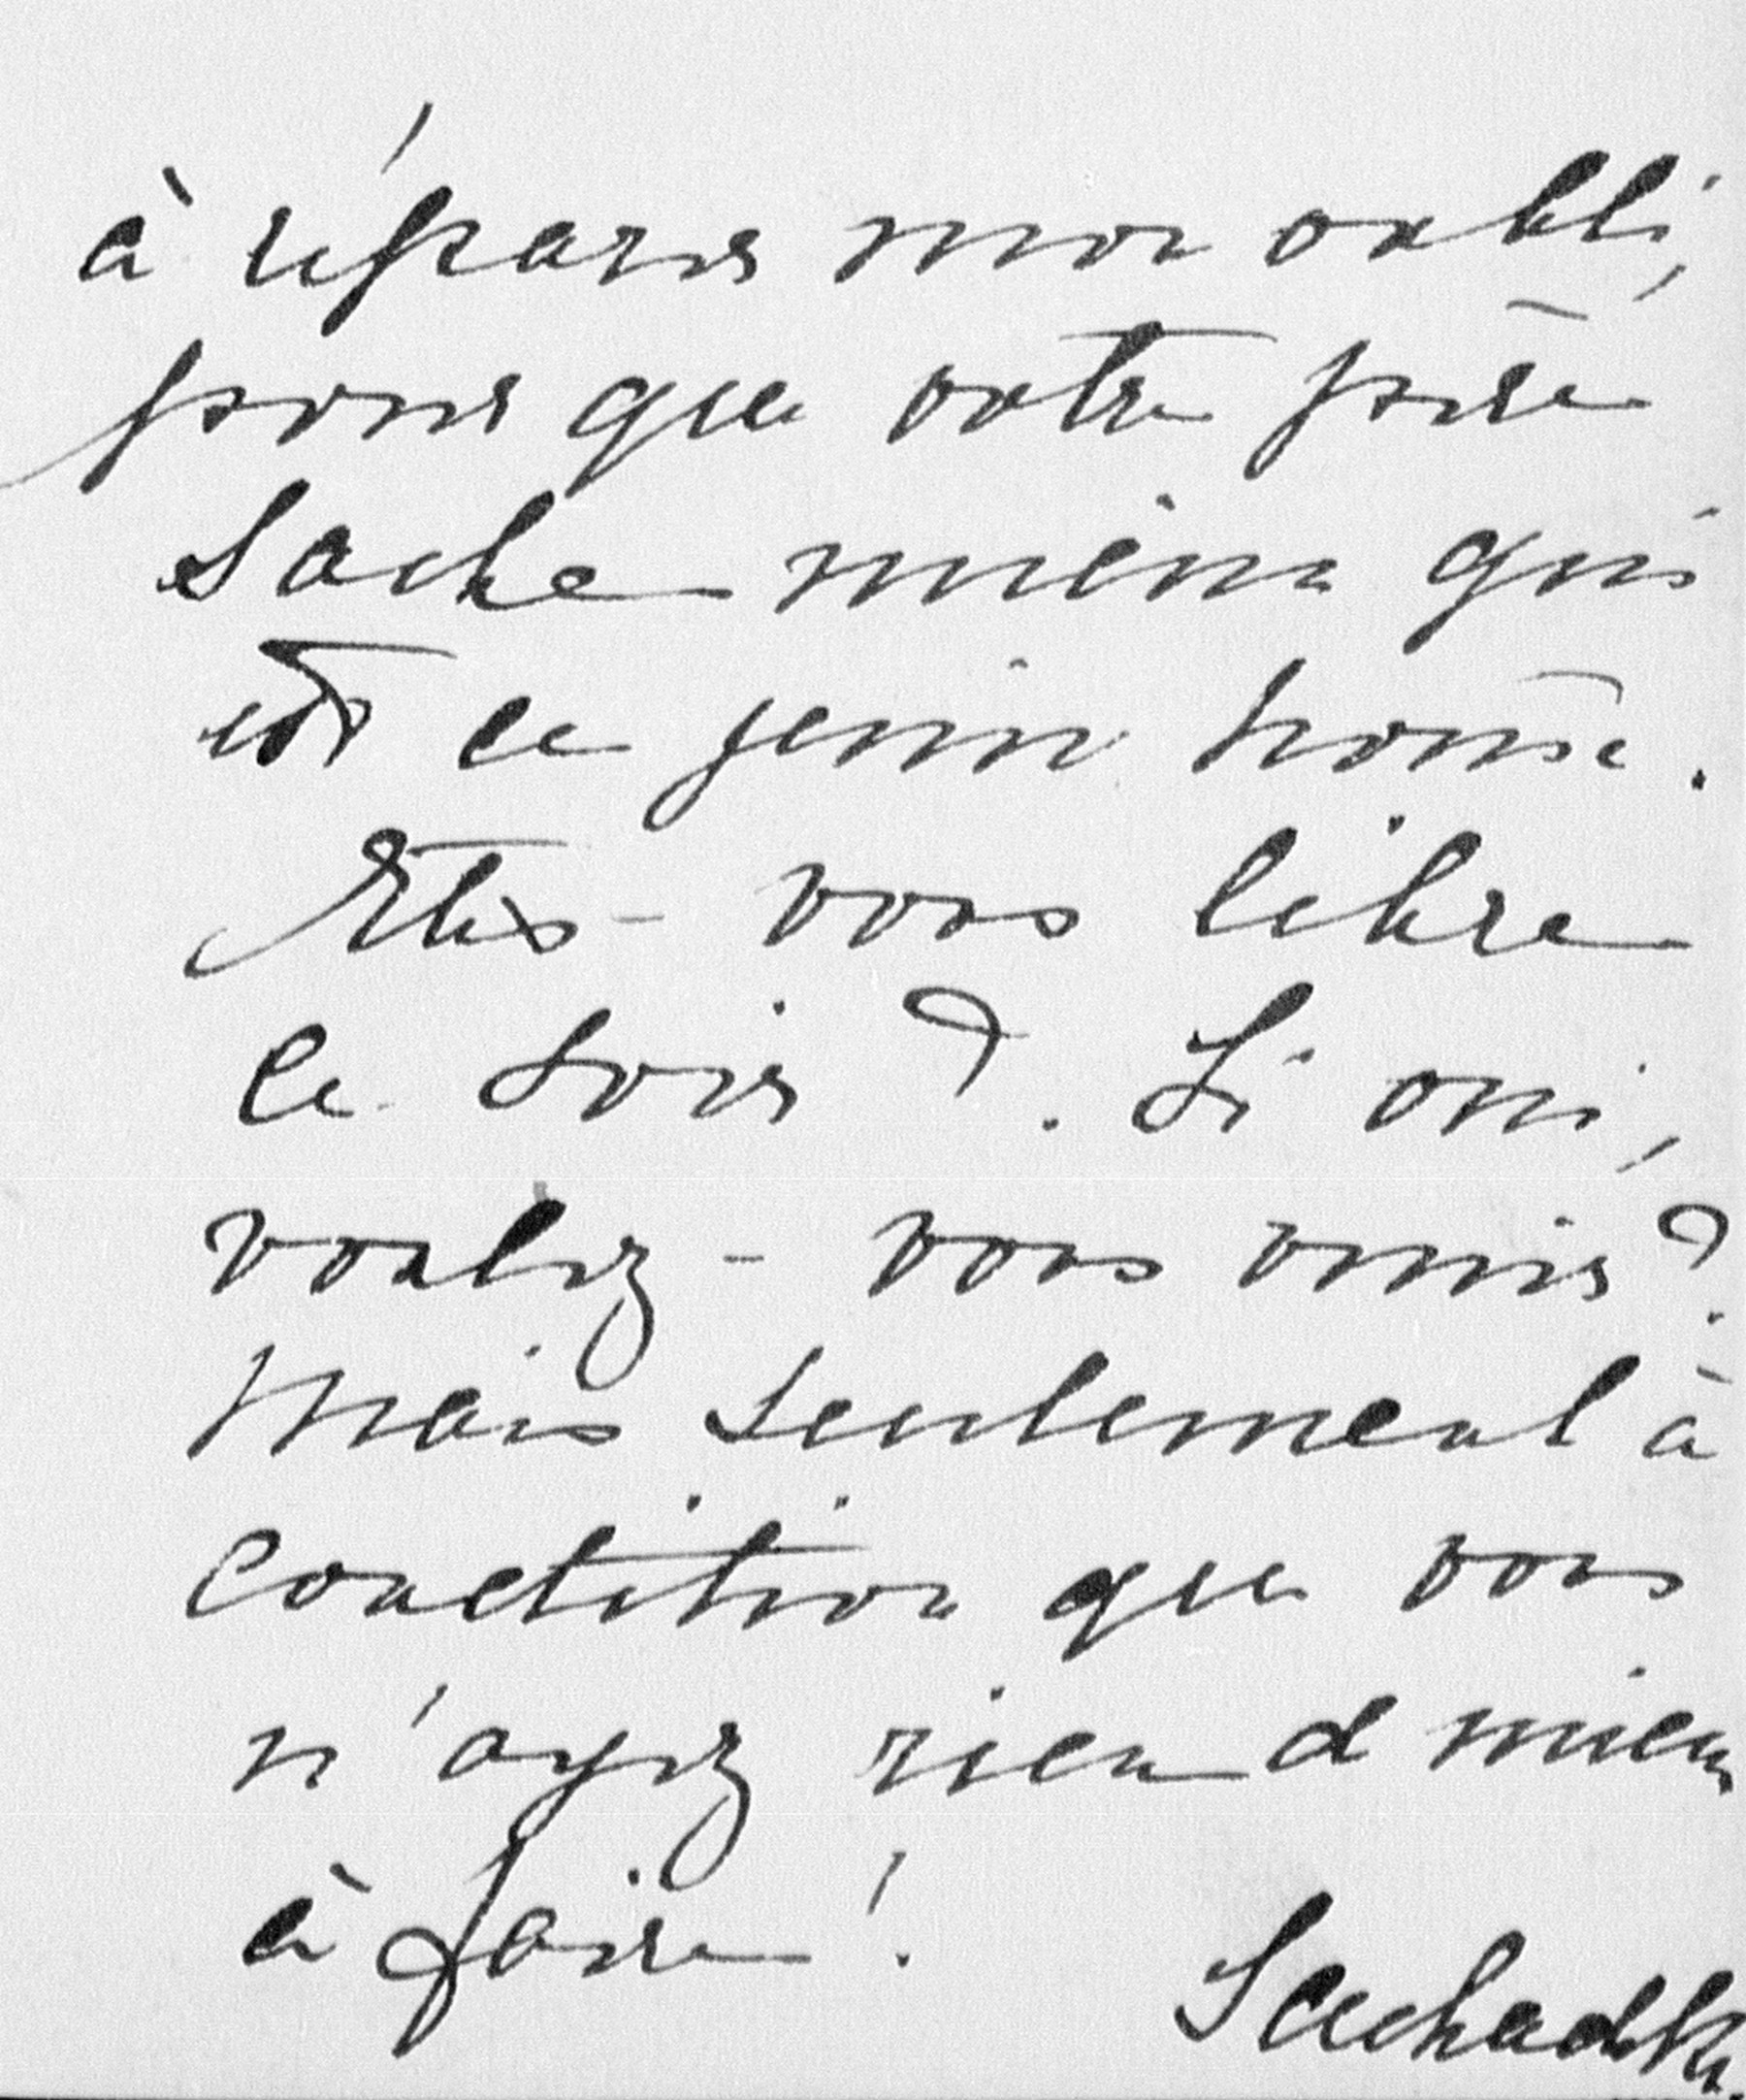 à réparer mon oubli,
pour que votre père
sache mieux qui
est ce jeune homme.
Etes-vous libre
ce soir ? Si oui,
voulez-vous venir ?
Mais seulement à
condition que vous
n'ayez rien d mieux
à faire !